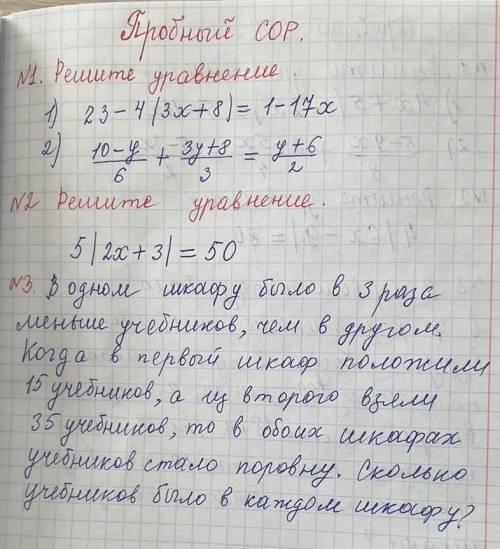 Пробный СОР.
№1. Решите уравнение.
1) 23-4(3x+8)=1-17x
2) (10-y)/6 + (3y+8)/3 = (y+6)/2
№2 Решите уравнение.
5|2x+3|=50
№3. В одном шкафу было в 3 раза
меньше учебников, чем в другом.
Когда в первый шкаф положили
15 учебников, а из второго взяли
35 учебников, то в обоих шкафах
учебников стало поровну. Сколько
учебников было в каждом шкафу?